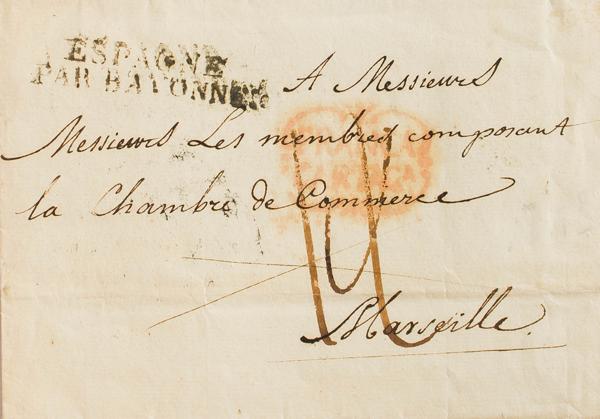 ESPAGNE
PAR BAYONNE
A Messieurs
Messieurs Les membres composant
la Chambre de Commerce
Marseille.